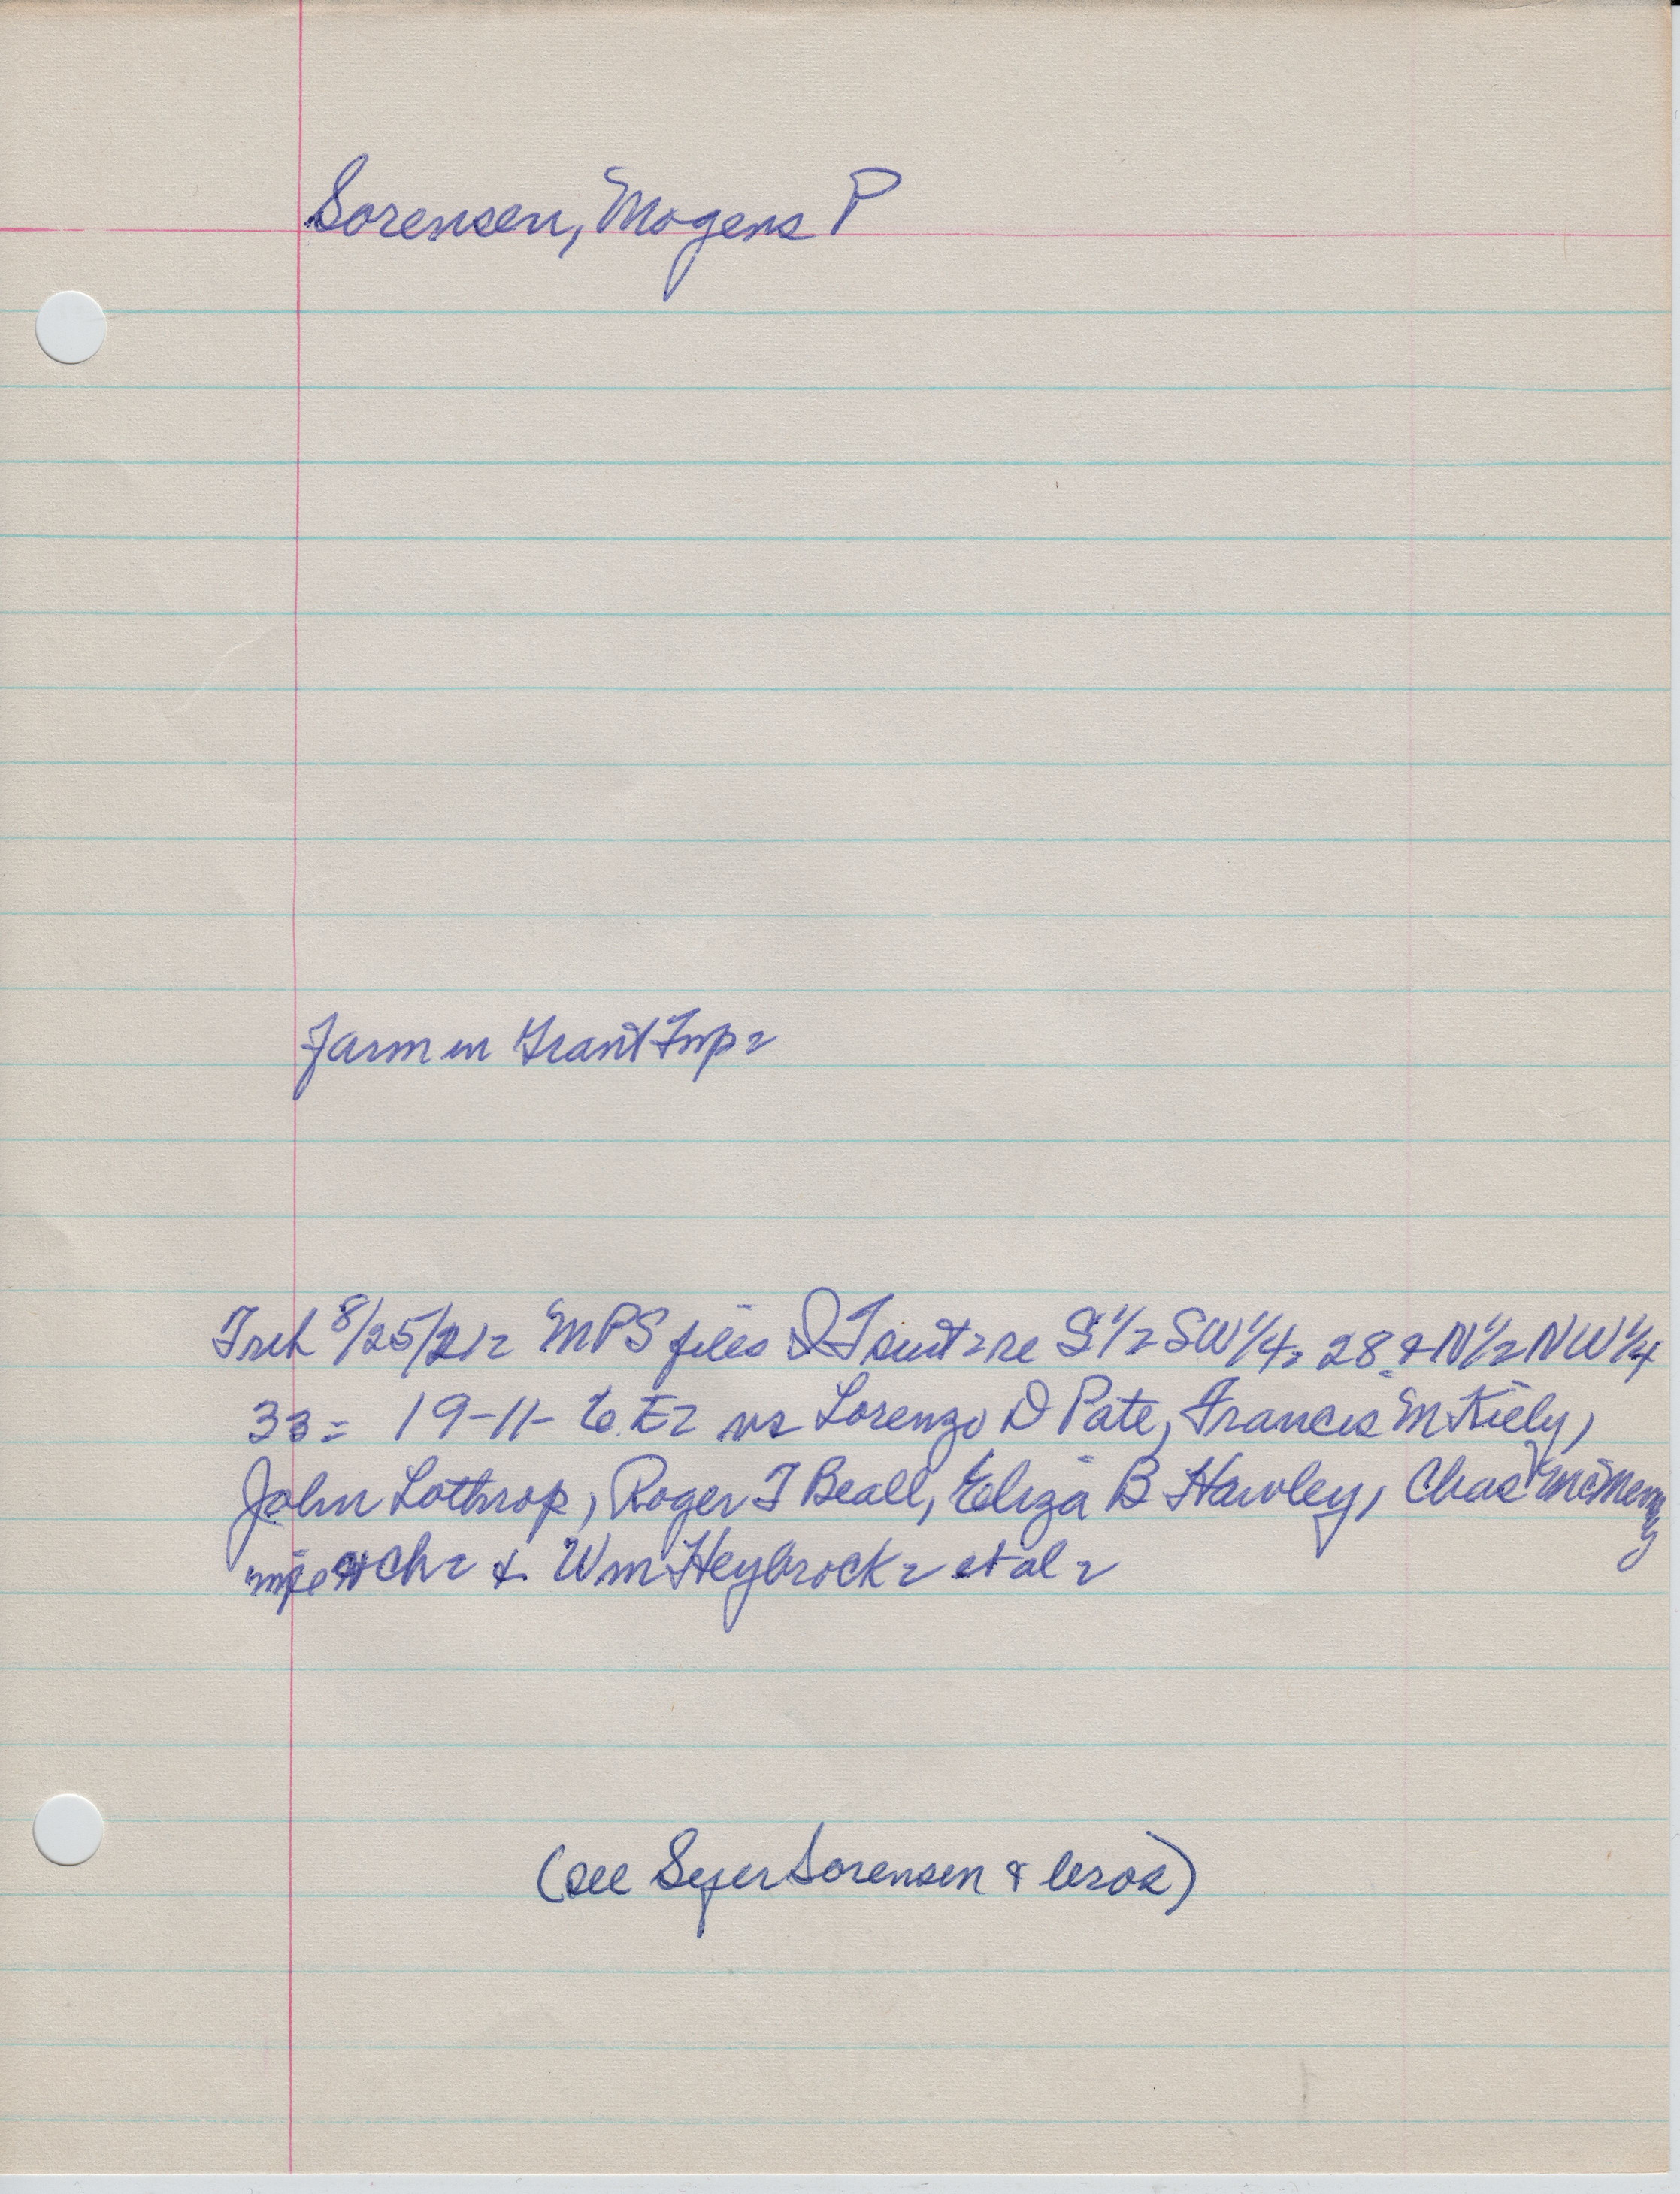 Sorensen, Mogens P
Farm in Grant Twp
8/25/21 MPS files QT suit re S1/2 SW1/4, 28 & N1/2 NW1/4
33 = 19-11- vs Lorenzo D Pate, Francis M Kiely,
John Lothrop, Roger T Beall, Eliza B Hawley, Chas
& Wm Heybrock et al
(see Seyer Sorensen & bros)